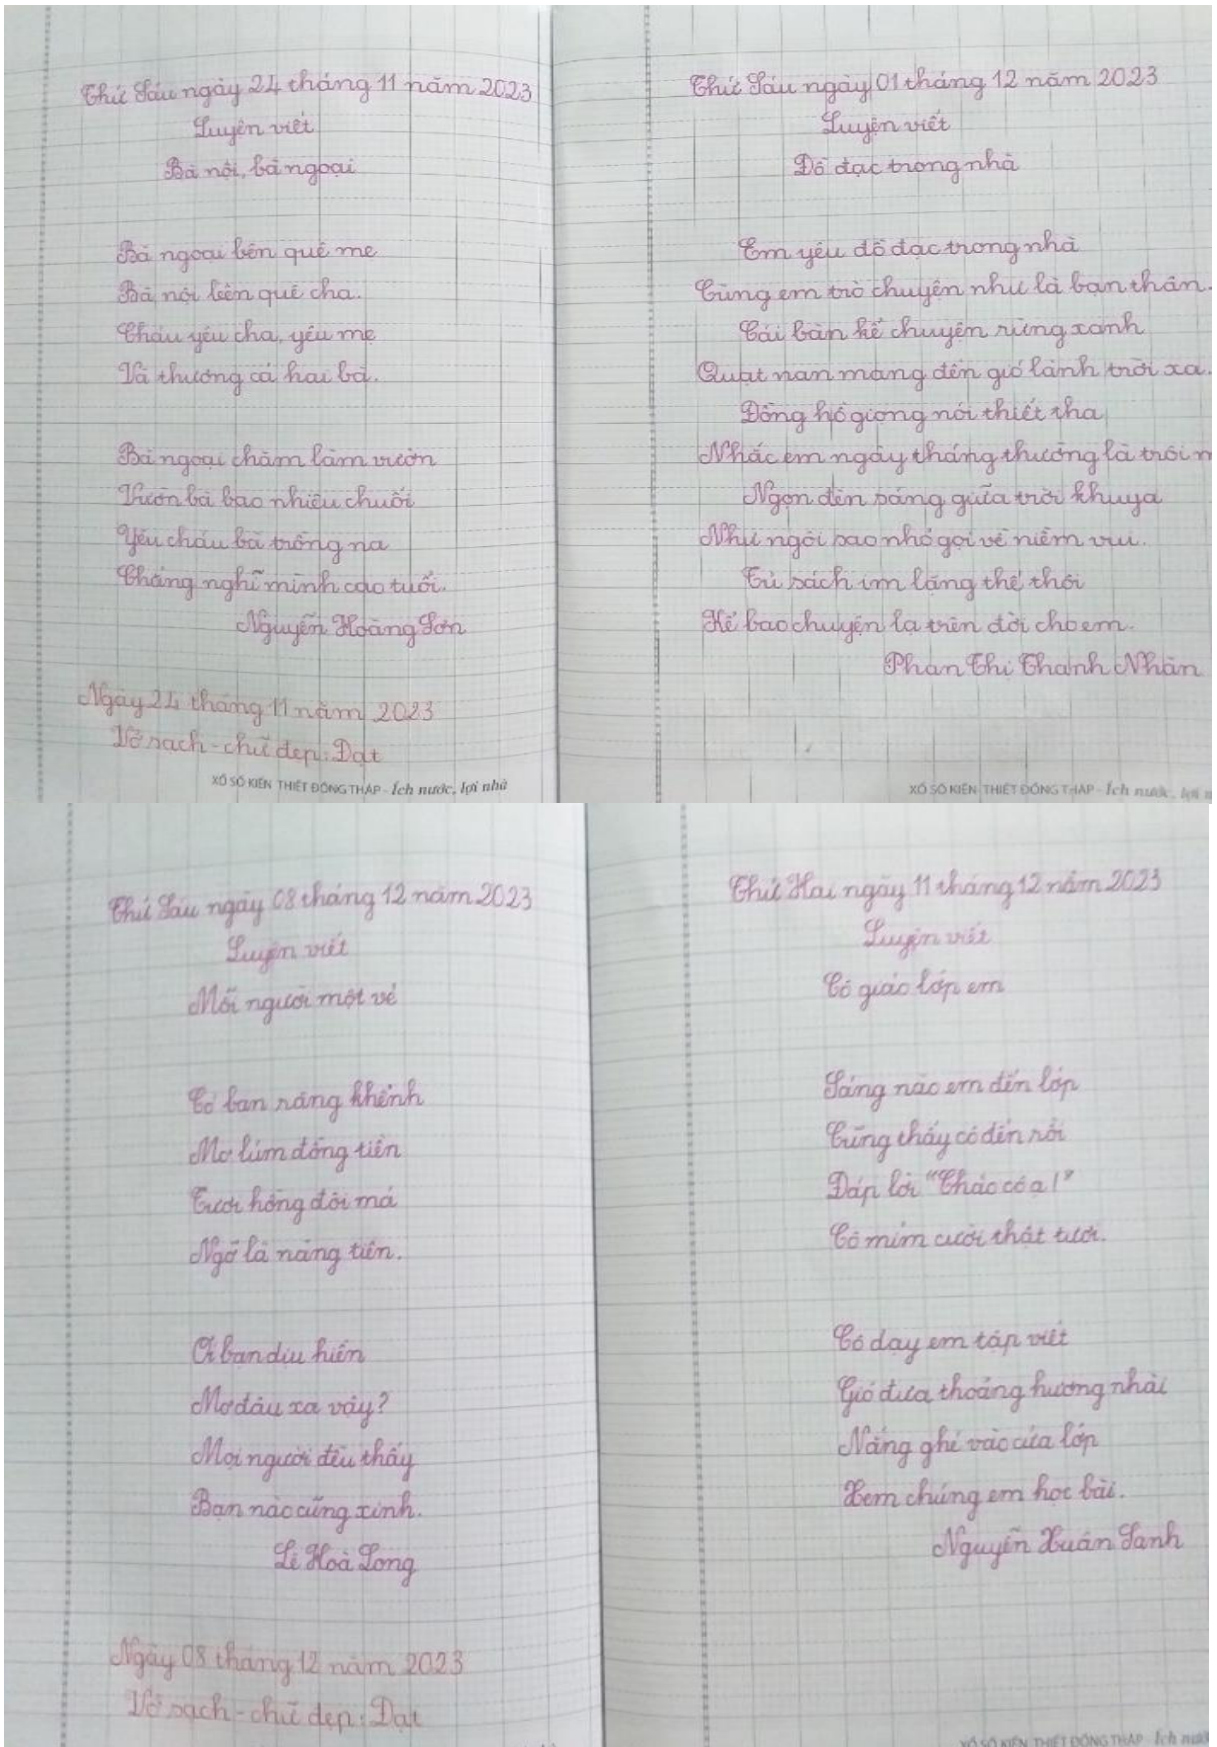 Thứ Sáu ngày 24 tháng 11 năm 2023
Luyện viết
Bà nội, bà ngoại
Bà ngoại bên quê mẹ
Bà nội bên quê cha.
Cháu yêu cha, yêu mẹ
Và thương cả hai bà.
Bà ngoại chăm làm vườn
Vườn bà bao nhiêu chuối
Yêu cháu bà trồng na
Chẳng nghĩ mình cao tuổi.
Nguyễn Hoàng Sơn
Ngày 24 tháng 11 năm 2023
Vở sạch - chữ đẹp: Đạt
XỔ SỐ KIẾN THIẾT ĐỒNG THÁP - Ích nước, lợi nhà
Thứ Sáu ngày 01 tháng 12 năm 2023
Luyện viết
Đồ đạc trong nhà
Em yêu đồ đạc trong nhà
Cùng em trò chuyện như là bạn thân.
Cái bàn kể chuyện rừng xanh
Quạt nan mang đến gió lành trời xa.
Đồng hồ giọng nói thiết tha
Nhắc em ngày tháng thường là trôi m
Ngọn đèn sáng giữa trời khuya
Như ngôi sao nhỏ gọi về niềm vui.
Tủ sách im lặng thế thôi
Kể bao chuyện lạ trên đời cho em.
Phan Thị Thanh Nhàn
XỔ SỐ KIẾN THIẾT ĐỒNG THÁP - Ích nước, lợi n
Thứ Sáu ngày 08 tháng 12 năm 2023
Luyện viết
Mỗi người một vẻ
Có bạn răng khểnh
Mơ lúm đồng tiền
Tươi hồng đôi má
Ngỡ là nàng tiên.
Ơi bạn dịu hiền
Mơ đâu xa vậy?
Mọi người đều thấy
Bạn nào cũng xinh.
Lê Hoà Long
Ngày 08 tháng 12 năm 2023
Vở sạch - chữ đẹp: Đạt
Thứ Hai ngày 11 tháng 12 năm 2023
Luyện viết
Cô giáo lớp em
Sáng nào em đến lớp
Cũng thấy cô đến rồi
Đáp lời "Chào cô ạ!"
Cô mỉm cười thật tươi.
Cô dạy em tập viết
Gió đưa thoảng hương nhài
Nắng ghé vào cửa lớp
Xem chúng em học bài.
Nguyễn Xuân Sanh
XỔ SỐ KIẾN THIẾT ĐỒNG THÁP - Ích nước